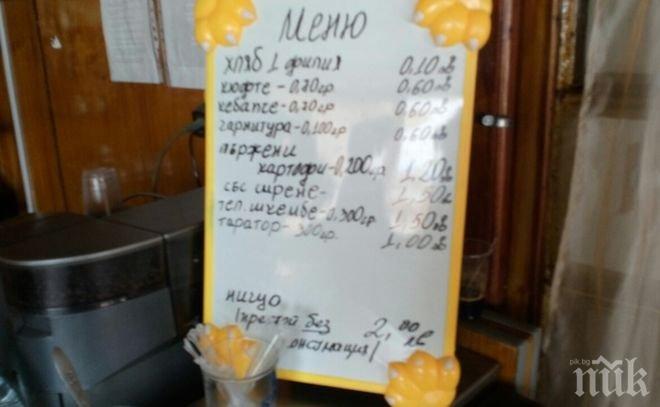 Меню
хляб 1 филия 0,10 лв
кюфте - 0,70гр. 0,60 лв
кебапче - 0,70гр 0,60 лв
гарнитура - 0,100гр 0,60 лв
пържени
картофи - 0,200гр. 1,20 лв
със сирене - 1,50 лв
тел. шкембе - 0,300гр. 1,50 лв
таратор - 300гр. 1,00 лв
без 2,00 лв
консумация/
pik.bg
пик